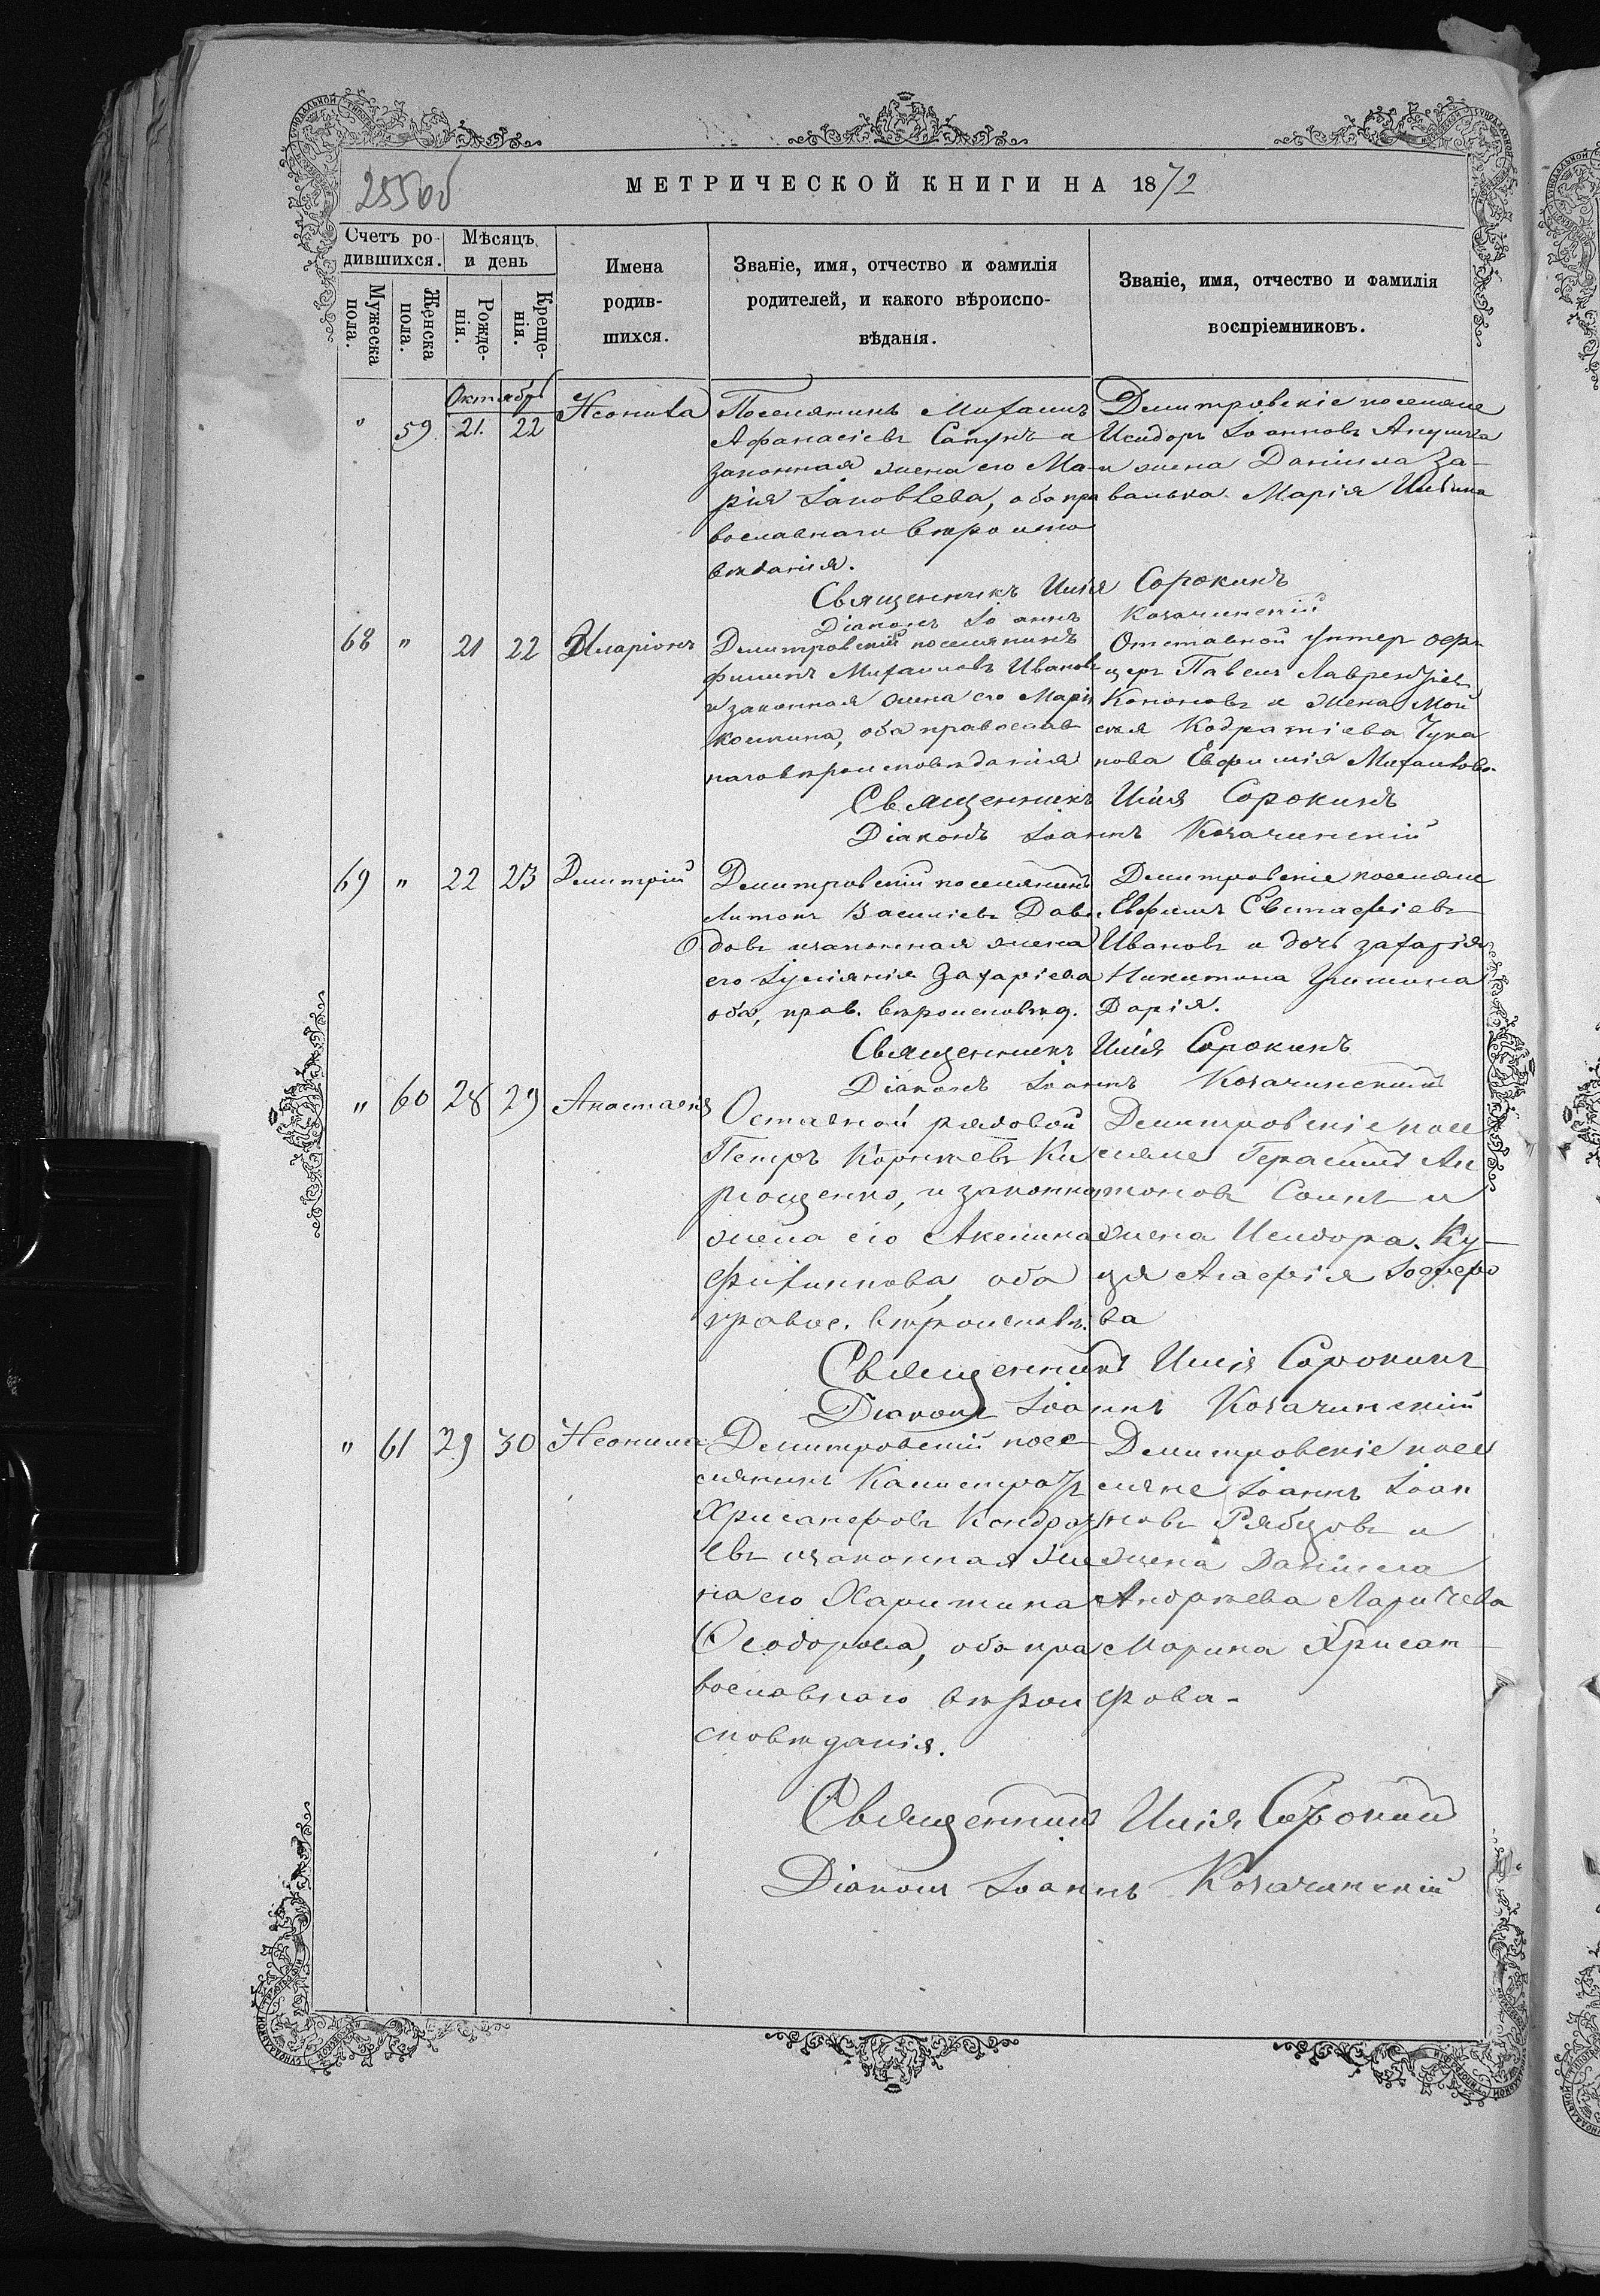 255 об
МЕТРИЧЕСКОЙ КНИГИ НА 1872
Счетъ ро-
дившихся.
Мѣсяцъ
и день
Мужеска
пола.
Женска
пола.
Рожде-
нія.
Креще-
нія.
Имена
родив-
шихся.
Званіе, имя, отчество и фамилія
родителей, и какого вѣроиспо-
вѣданія.
Званіе, имя, отчество и фамилія
воспріемниковъ.
Октябрь
" 59 21. 22
Неонила
Поселянинъ Михаилъ
Афанасіевъ и
законная жена его Ма-
рія Іаковлева, оба пра
вославнаго вѣроиспо
вѣданія.
Димитровскіе поселяне
Исидоръ Іоанновъ
и жена Даніила За-
валька Марія
Священникъ Илія Сорокинъ
Діаконъ Іоаннъ Козачинскій
68 " 21 22 Иларіонъ
Димитровскій поселянинъ
Филипъ Михаиловъ Иванов
и законная жена его Марія
оба православ
наго вѣроисповѣданія
Отставной унтеръ офи
церъ Павелъ Лаврентіев
Кононовъ и жена Мой
сея Кодратіева Чука
нова Евфимія Михаилова
Священникъ Илія Сорокинъ
Діаконъ Іоаннъ Козачинскій
69 " 22 23 Димитрій
Димитровскій поселянинъ
Антонъ Василіевъ Давы
довъ и законная жена
его Іуліанія Захаріева
оба, прав. вѣроисповѣд.
Димитровскіе поселяне
Евфимъ Евстафіевъ
Ивановъ и дочь Захарія
Никитина Гришина
Дарія.
Священникъ Илія Сорокинъ
Діаконъ Іоаннъ Козачинскій
" 60 28 29 Анастасія
Оставной рядовой
Петръ Корніевъ Ки
рющенко, и законная
жена его Акелина
Филиппова, оба
правос. вѣроисповѣ.
Димитровскіе посе
ляне Герасимъ Ан
тоновъ и
жена Исидора Ку-
ця Агафія
ва
Священникъ Илія Сорокинъ
Діаконъ Іоаннъ Козачинскій
" 61 29 30 Неонила
Димитровскій посе
лянинъ Калистратъ
Хрисанфовъ Кондрат
евъ и законная же
на его Харитина
Ѳеодорова, оба пра
вославнаго вѣрои
сповѣданія.
Димитровскіе посе
ляне Іоаннъ Іоан
новъ Рябцовъ и
жена Даніила
Андреева Ларичева
Марина Хрисан-
фова.
Священникъ Илія Сорокин
Діаконъ Іоаннъ Козачинскій